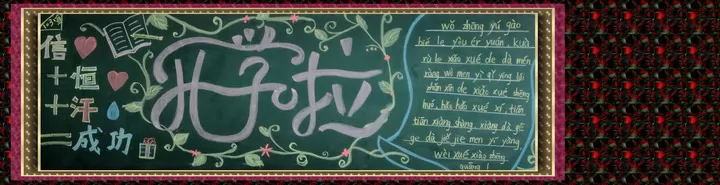 信
十恒
十汗
=成功
开学啦
wǒ zhōng yú gào
bié le yòu ér yuán, kuà
rù le xiǎo xué de dà mén
ràng wǒ men yì qǐ yíng lái
zhǎn xīn de xiǎo xué shēng
huó, hǎo hǎo xué xí, tiān
tiān xiàng shàng, xiàng dà gē
ge dà jiě jie men yí yàng
wèi xué xiào zhēng
guāng !